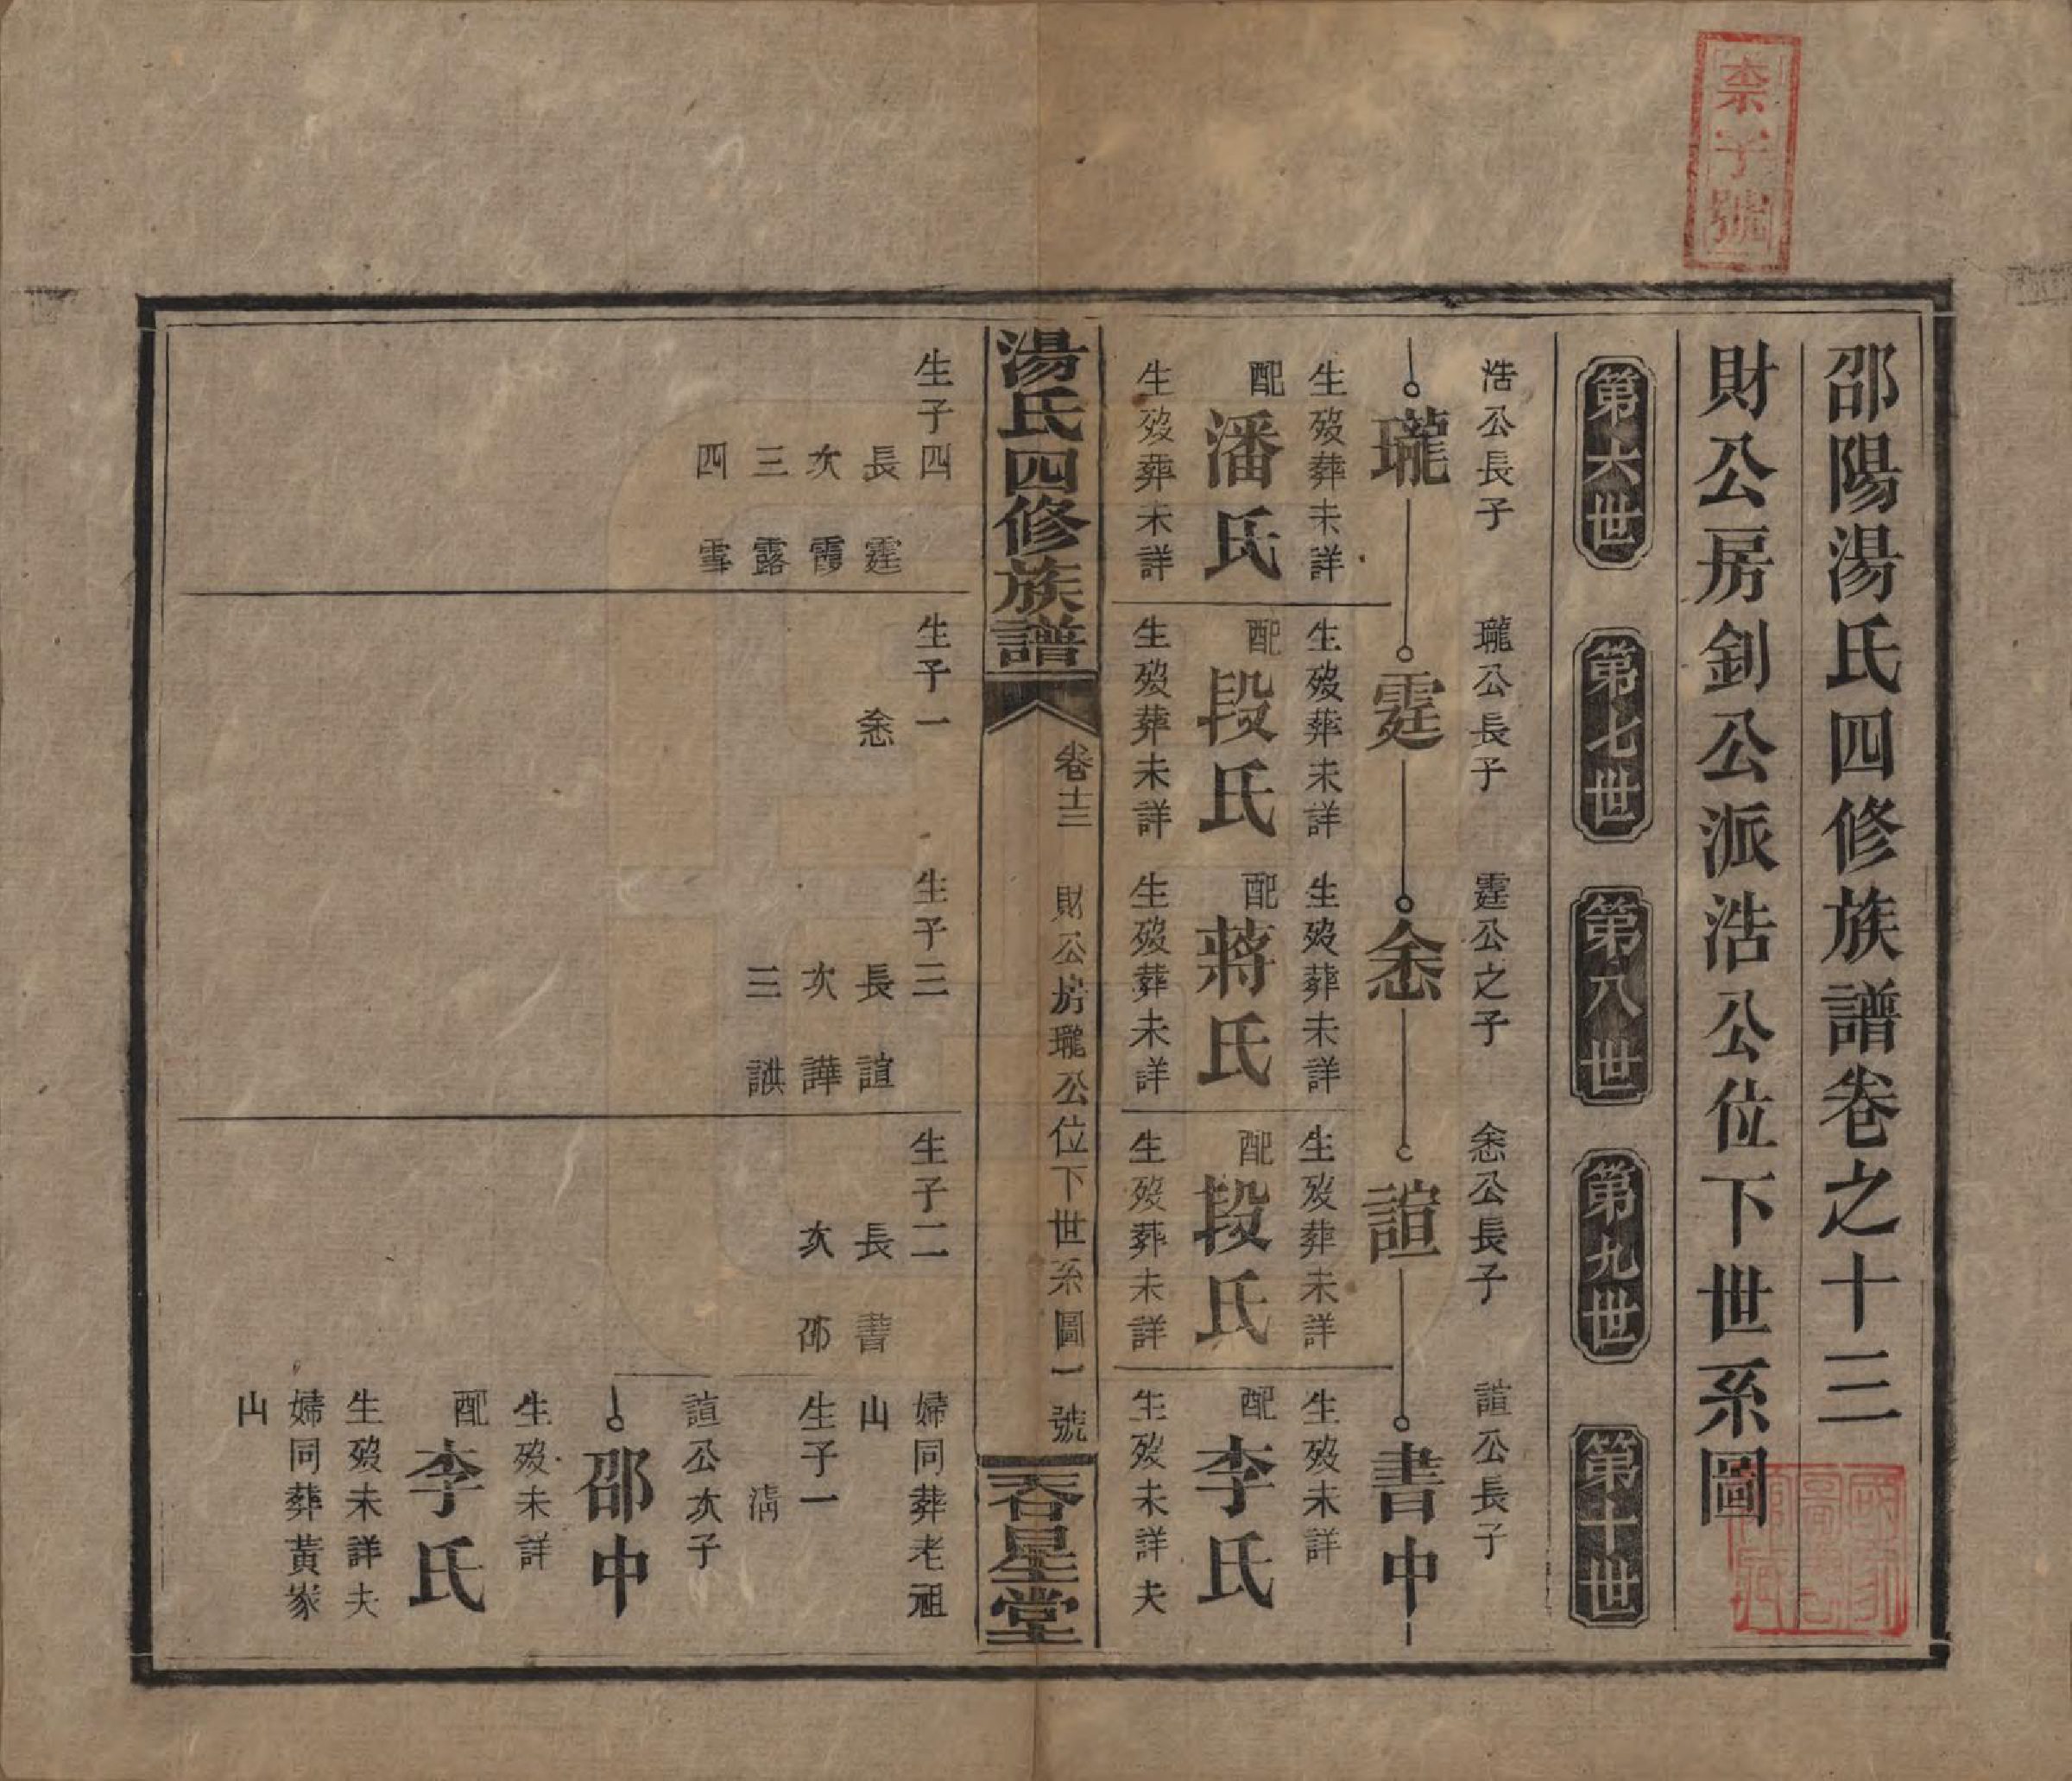 柰字號
邵陽湯氏四修族譜卷之十三
財公房釗公派浩公位下世系圖
第六世
第七世
第八世
第九世
第十世
浩公長子
瓏
生歿葬未詳
配
潘氏
生歿葬未詳
瓏公長子
霆
生歿葬未詳
配
段氏
生歿葬未詳
霆公之子
悆
生歿葬未詳
配
蔣氏
生歿葬未詳
悆公長子
諠
生歿葬未詳
配
段氏
生歿葬未詳
諠公長子
書中
生歿未詳
配
李氏
生歿未詳夫
湯氏四修族譜
卷十三
財公房瓏公位下世系圖
一號
吞星堂
生子四
長 霆
次 霞
三 露
四 雪
生子一
悆
生子三
長 諠
次 譁
三 諆
生子二
長 書
次 邵
婦同葬老祖
山
生子一
清
諠公次子
邵中
生歿未詳
配
李氏
生歿未詳夫
婦同葬黃家
山